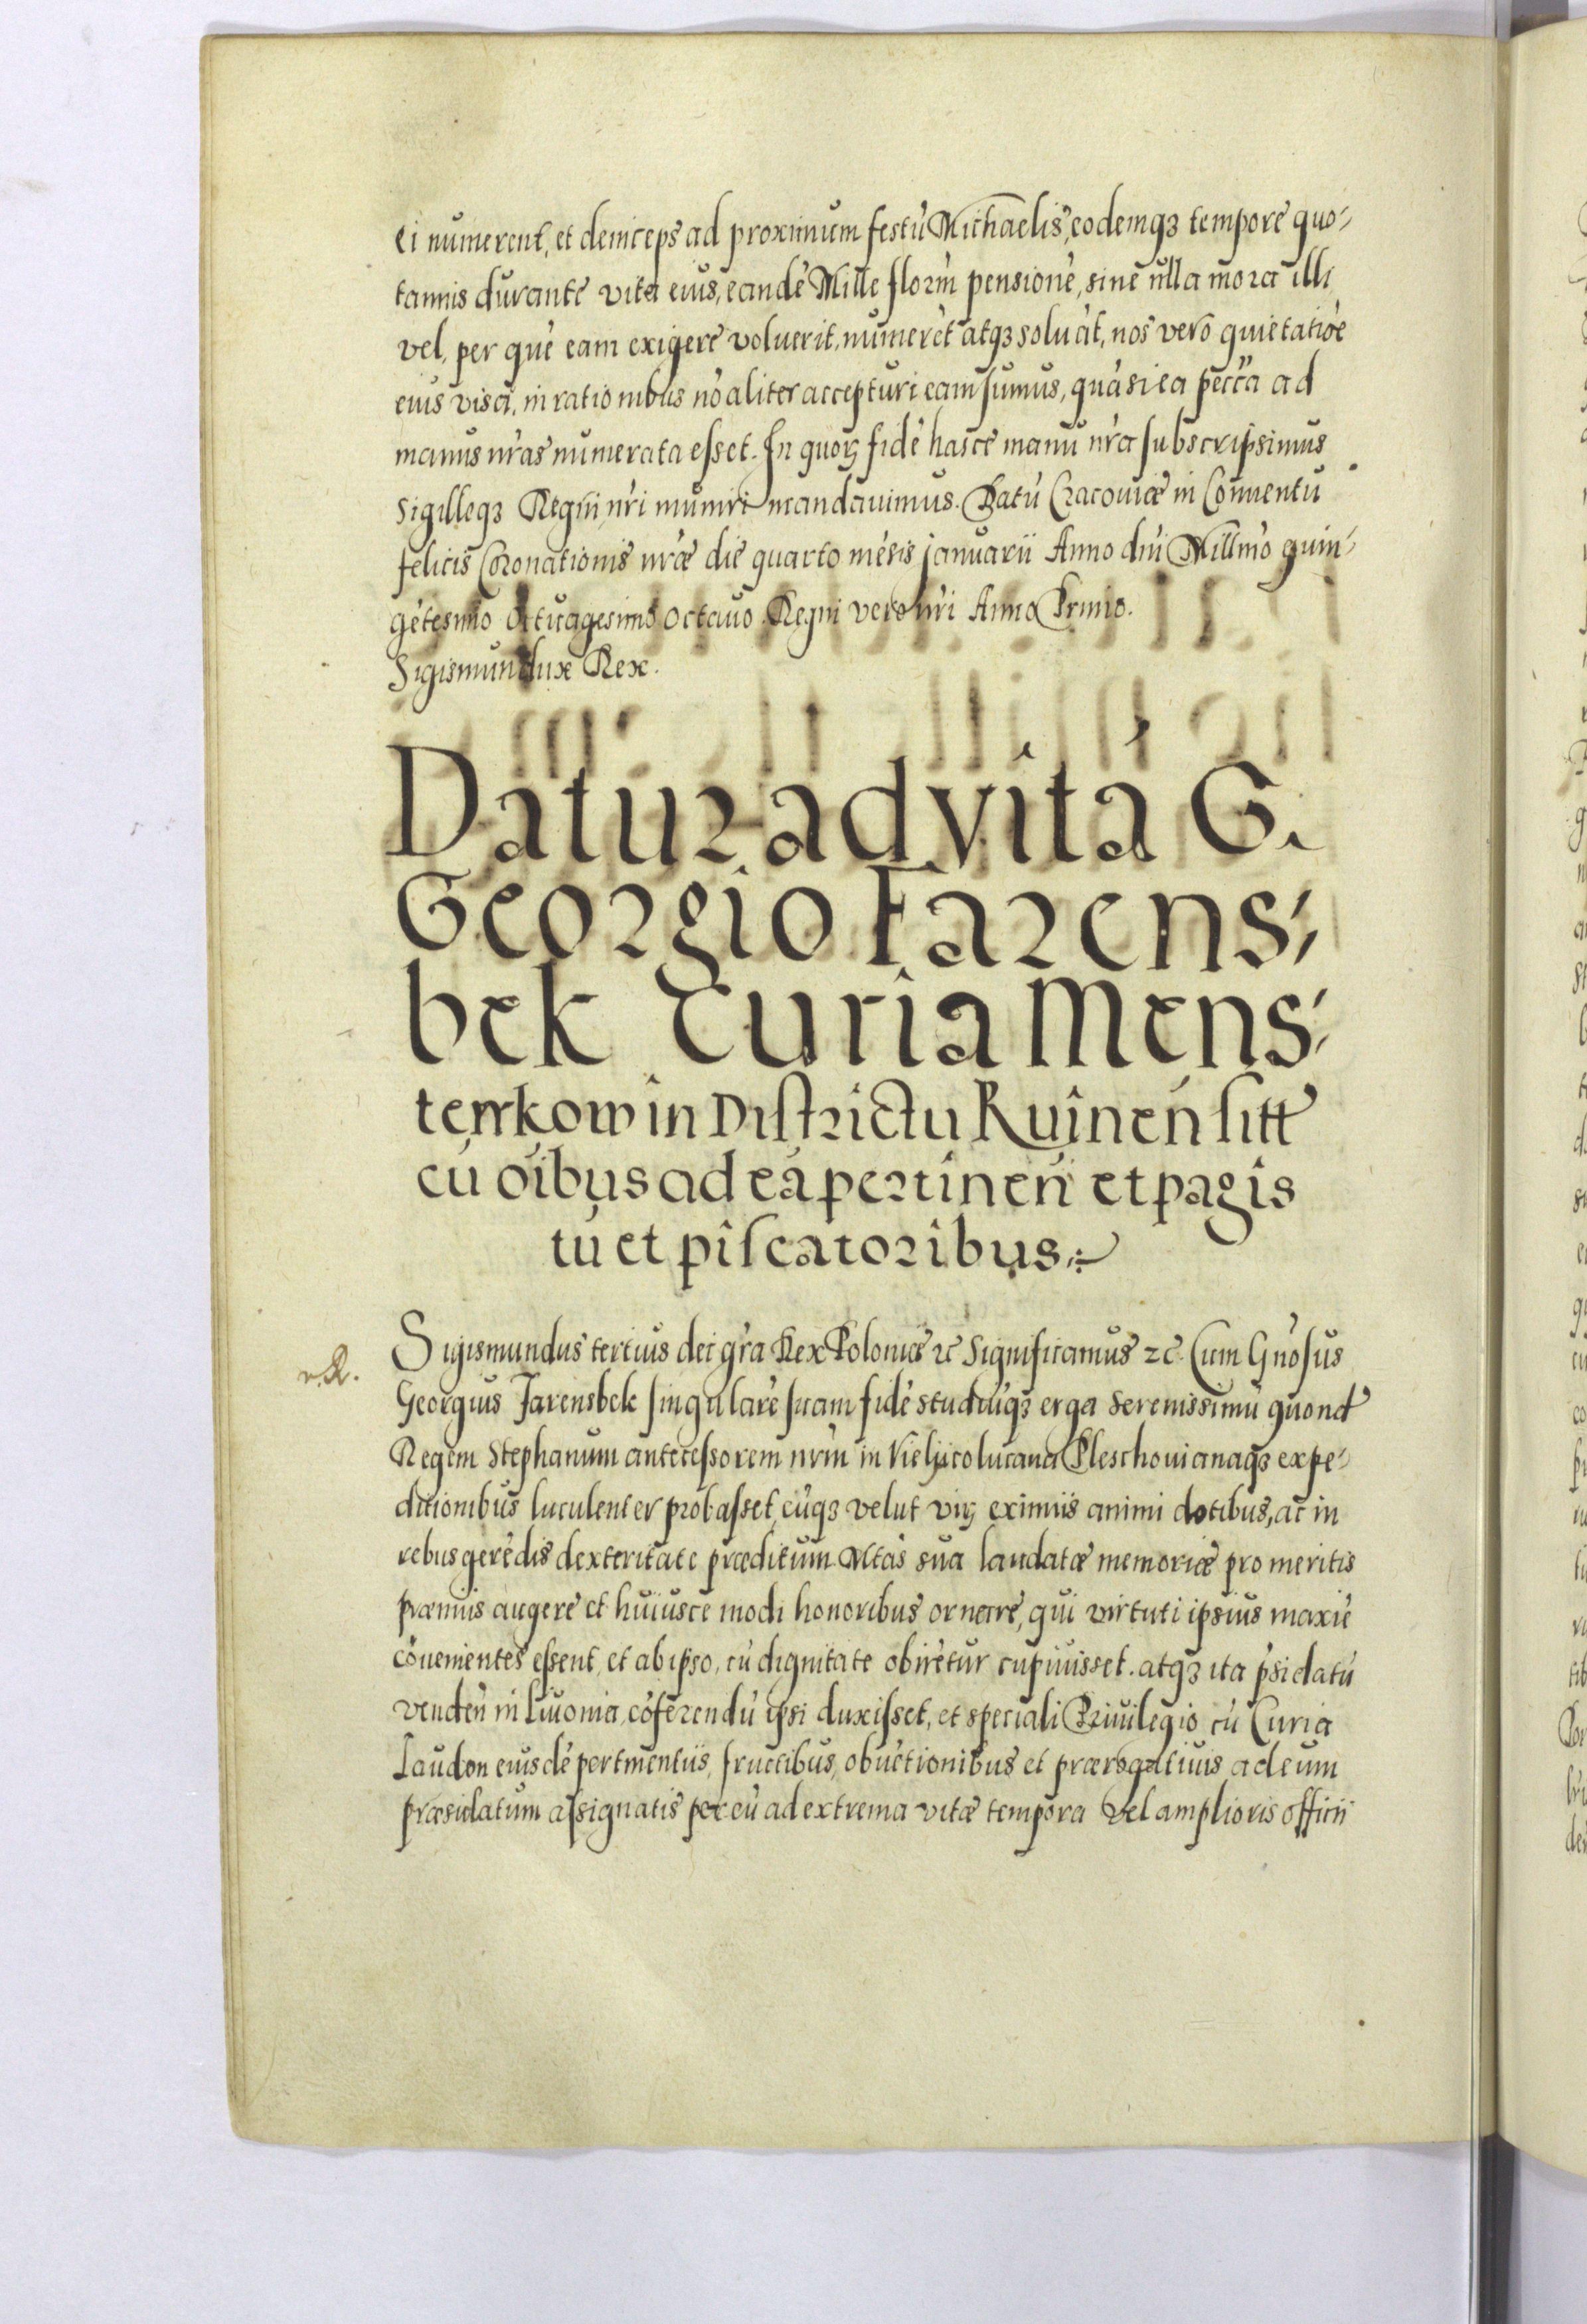 ei numerent, et deinceps ad proximum festũ Michaelis, eodemqꝫ tempore quo-
tannis durante vita eius, eandẽ Mille florñ pensionẽ, sine ulla mora illi
vel, per quẽ eam exigere voluerit, numerẽt atqꝫ soluãt, nos vero quietatiõe
eius visa, in rationibus nõ aliter accepturi eam sumus, quã si ea pecc̃a ad
manus nr̃as numerata esset. In quorꝫ fidẽ hasce manu nr̃a subscripsimus
Sigilleqꝫ Regni nr̃i muniri mandauimus. Datũ Cracoviæ in Conuentu
felicis Coronationis nr̃æ die quarto mẽsis januarii Anno dñi Millmõ quin-
gẽtesimo Octuagesimo octavo Regni vero nr̃i Anno Primo.
Sigismundux Rex.
Datur ad vitã G.
Georgio Farens-
bek Curia Mens-
tenkow in Districtu Ruinen̄ sitt
cũ oĩbus ad eã pertinen̄ et pagis
tũ et piscatoribus
Sigismundus tertius dei gr̃a Rex Poloniæ ꝛc Significamus ꝛc. Cum Gnõsus
Georgius Farensbek singularẽ suam fidẽ studiũqꝫ erga Serenissimũ quond
Regem Stephanum antecessorem nrm̃ in Vielijcolucana Pleschovianaqꝫ expe-
ditionibus luculenter probasset, cũqꝫ velut virꝫ eximiis animi dotibus, ac in
rebus gerẽdis dexteritate præditum Mtas̃ sua laudatæ memoriæ pro meritis
præmiis augere et huiusce modi honoribus ornare, qui virtuti ipsius maxiẽ
cõuenientes essent, et ab ipso, cũ dignitate obirẽtur cupivisset. atqꝫ ita p̃sidatũ
venden̄ in Livonia, cõferendũ ipsi duxisset, et speciali Privilegio cũ Curia
Laudon eiusdẽ pertinentiis, fructibus, obuẽtionibus et prærogatiuis ad eum
præsidatum assignatis per eũ ad extrema vitæ tempora vel amplioris officii